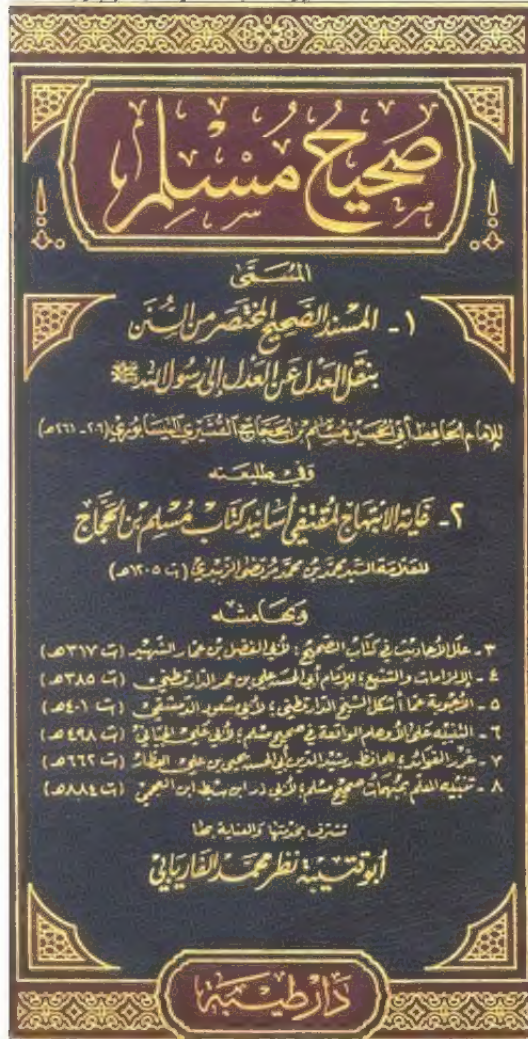 صحيح مسلم
المسمى
١- المسند الصحيح المختصر من السنن
بنقل العدل عن العدل إلى رسول الله ﷺ
للإمام الحافظ أبي الحسين مسلم بن الحجاج القشيري النيسابوري (٢٠٦ - ٢٦١هـ)
وفي طليعته
٢- غاية الابتهاج لمقتفي أسانيد كتاب مسلم بن الحجاج
للعلامة السيد محمد بن محمد مرتضى الزبيدي (ت ١٢٠٥هـ)
وبهامشه
٣- علل الأحاديث في كتاب الصحيح؛ لأبي الفضل بن عمار الشهيد (ت ٣١٧هـ)
٤- الإلزامات والتتبع؛ للإمام أبي الحسن علي بن عمر الدارقطني (ت ٣٨٥هـ)
٥- الأجوبة عما أشكل الشيخ الدارقطني؛ لأبي مسعود الدمشقي (ت ٤٠١هـ)
٦- التنبيه على الأوهام الواقعة في صحيح مسلم؛ لأبي علي الجياني (ت ٤٩٨هـ)
٧- غرر الفوائد؛ للحافظ رشيد الدين أبي الحسين يحيى بن علي العطار (ت ٦٦٢هـ)
٨- تنبيه المعلم بمبهمات صحيح مسلم؛ لأبي ذر ابن سبط ابن العجمي (ت ٨٨٤هـ)
تشرف بخدمتها والعناية بها
أبو قتيبة نظر محمد الفاريابي
دار طيبة